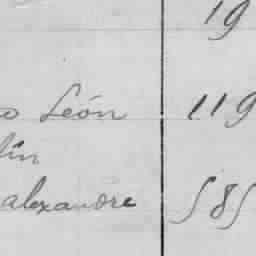 19
o León 119
lin
alexandre 585